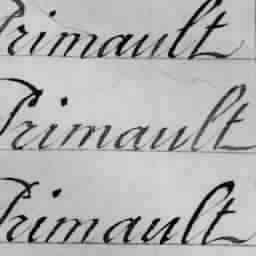 Primault
Primault
Primault